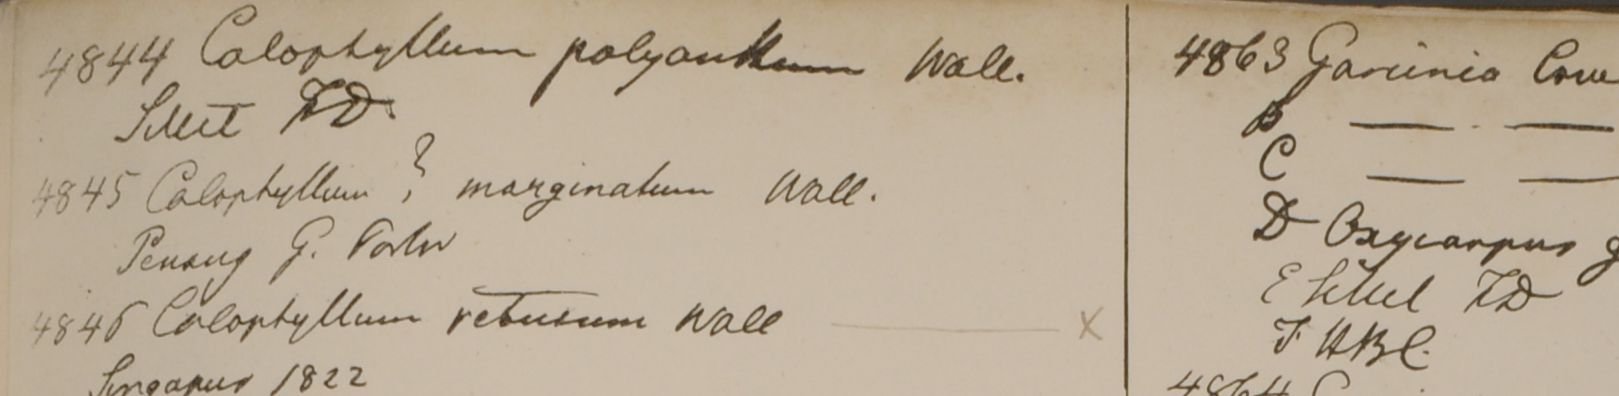 4844 Calophyllum polyanthum Wall.
Sillet FD.
4845 Calophyllum ? marginatum Wall.
Penang G. Porter
4846 Calophyllum retusum Wall X
Singapur 1822
4863 Garcinia Cow
B — —
C — —
D Oxycarpus g
E Sillet FD
F. HBC.
4864